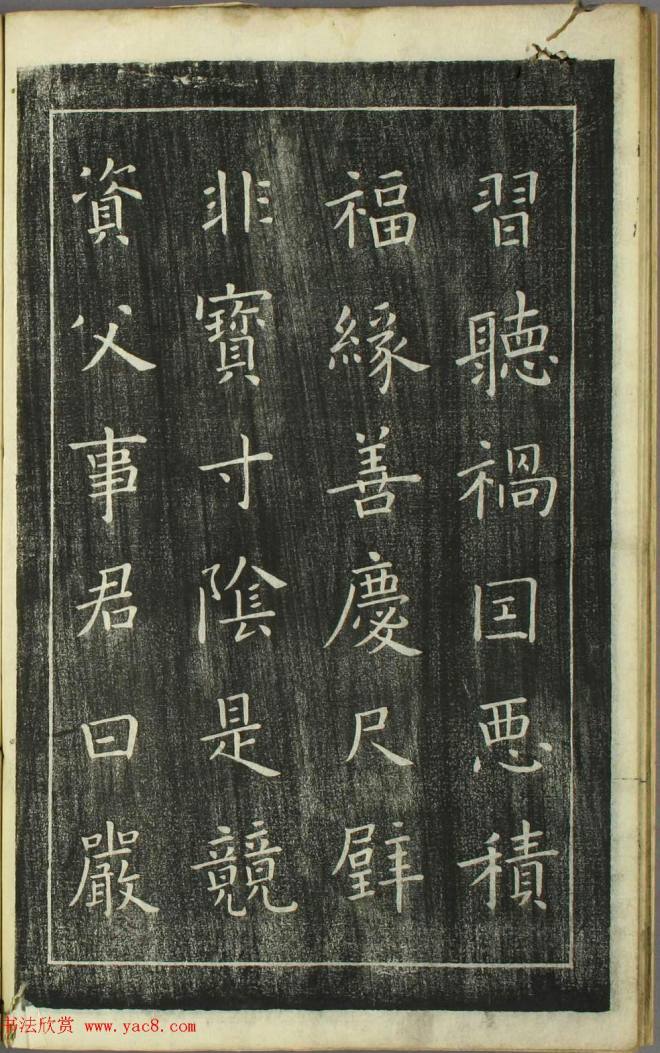 習聽禍囯悪積
福緣善慶尺璧
非寶寸陰是競
資父事君曰嚴
书法欣赏 www.yac8.com